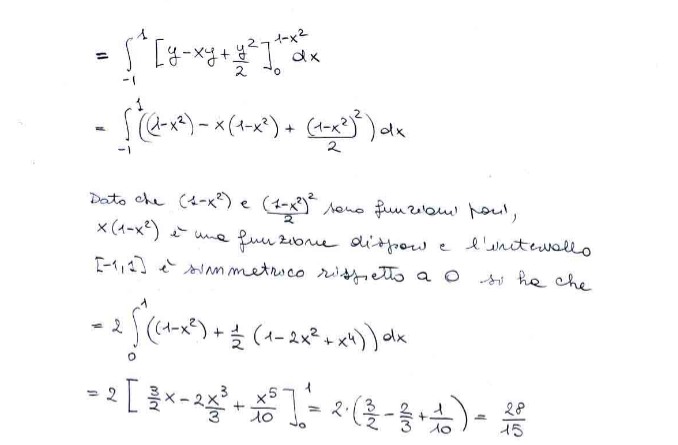 = ∫_{-1}^{1} [y - xy + y²/2]_0^{1-x²} dx
= ∫_{-1}^{1} ((1-x²) - x(1-x²) + (1-x²)²/2) dx
Dato che (1-x²) e (1-x²)²/2 sono funzioni pari,
x(1-x²) è una funzione dispari e l'intervallo
[-1,1] è simmetrico rispetto a 0 si ha che
= 2 ∫_0^1 ((1-x²) + 1/2 (1-2x²+x⁴)) dx
= 2 [3/2 x - 2x³/3 + x⁵/10]_0^1 = 2·(3/2 - 2/3 + 1/10) = 28/15